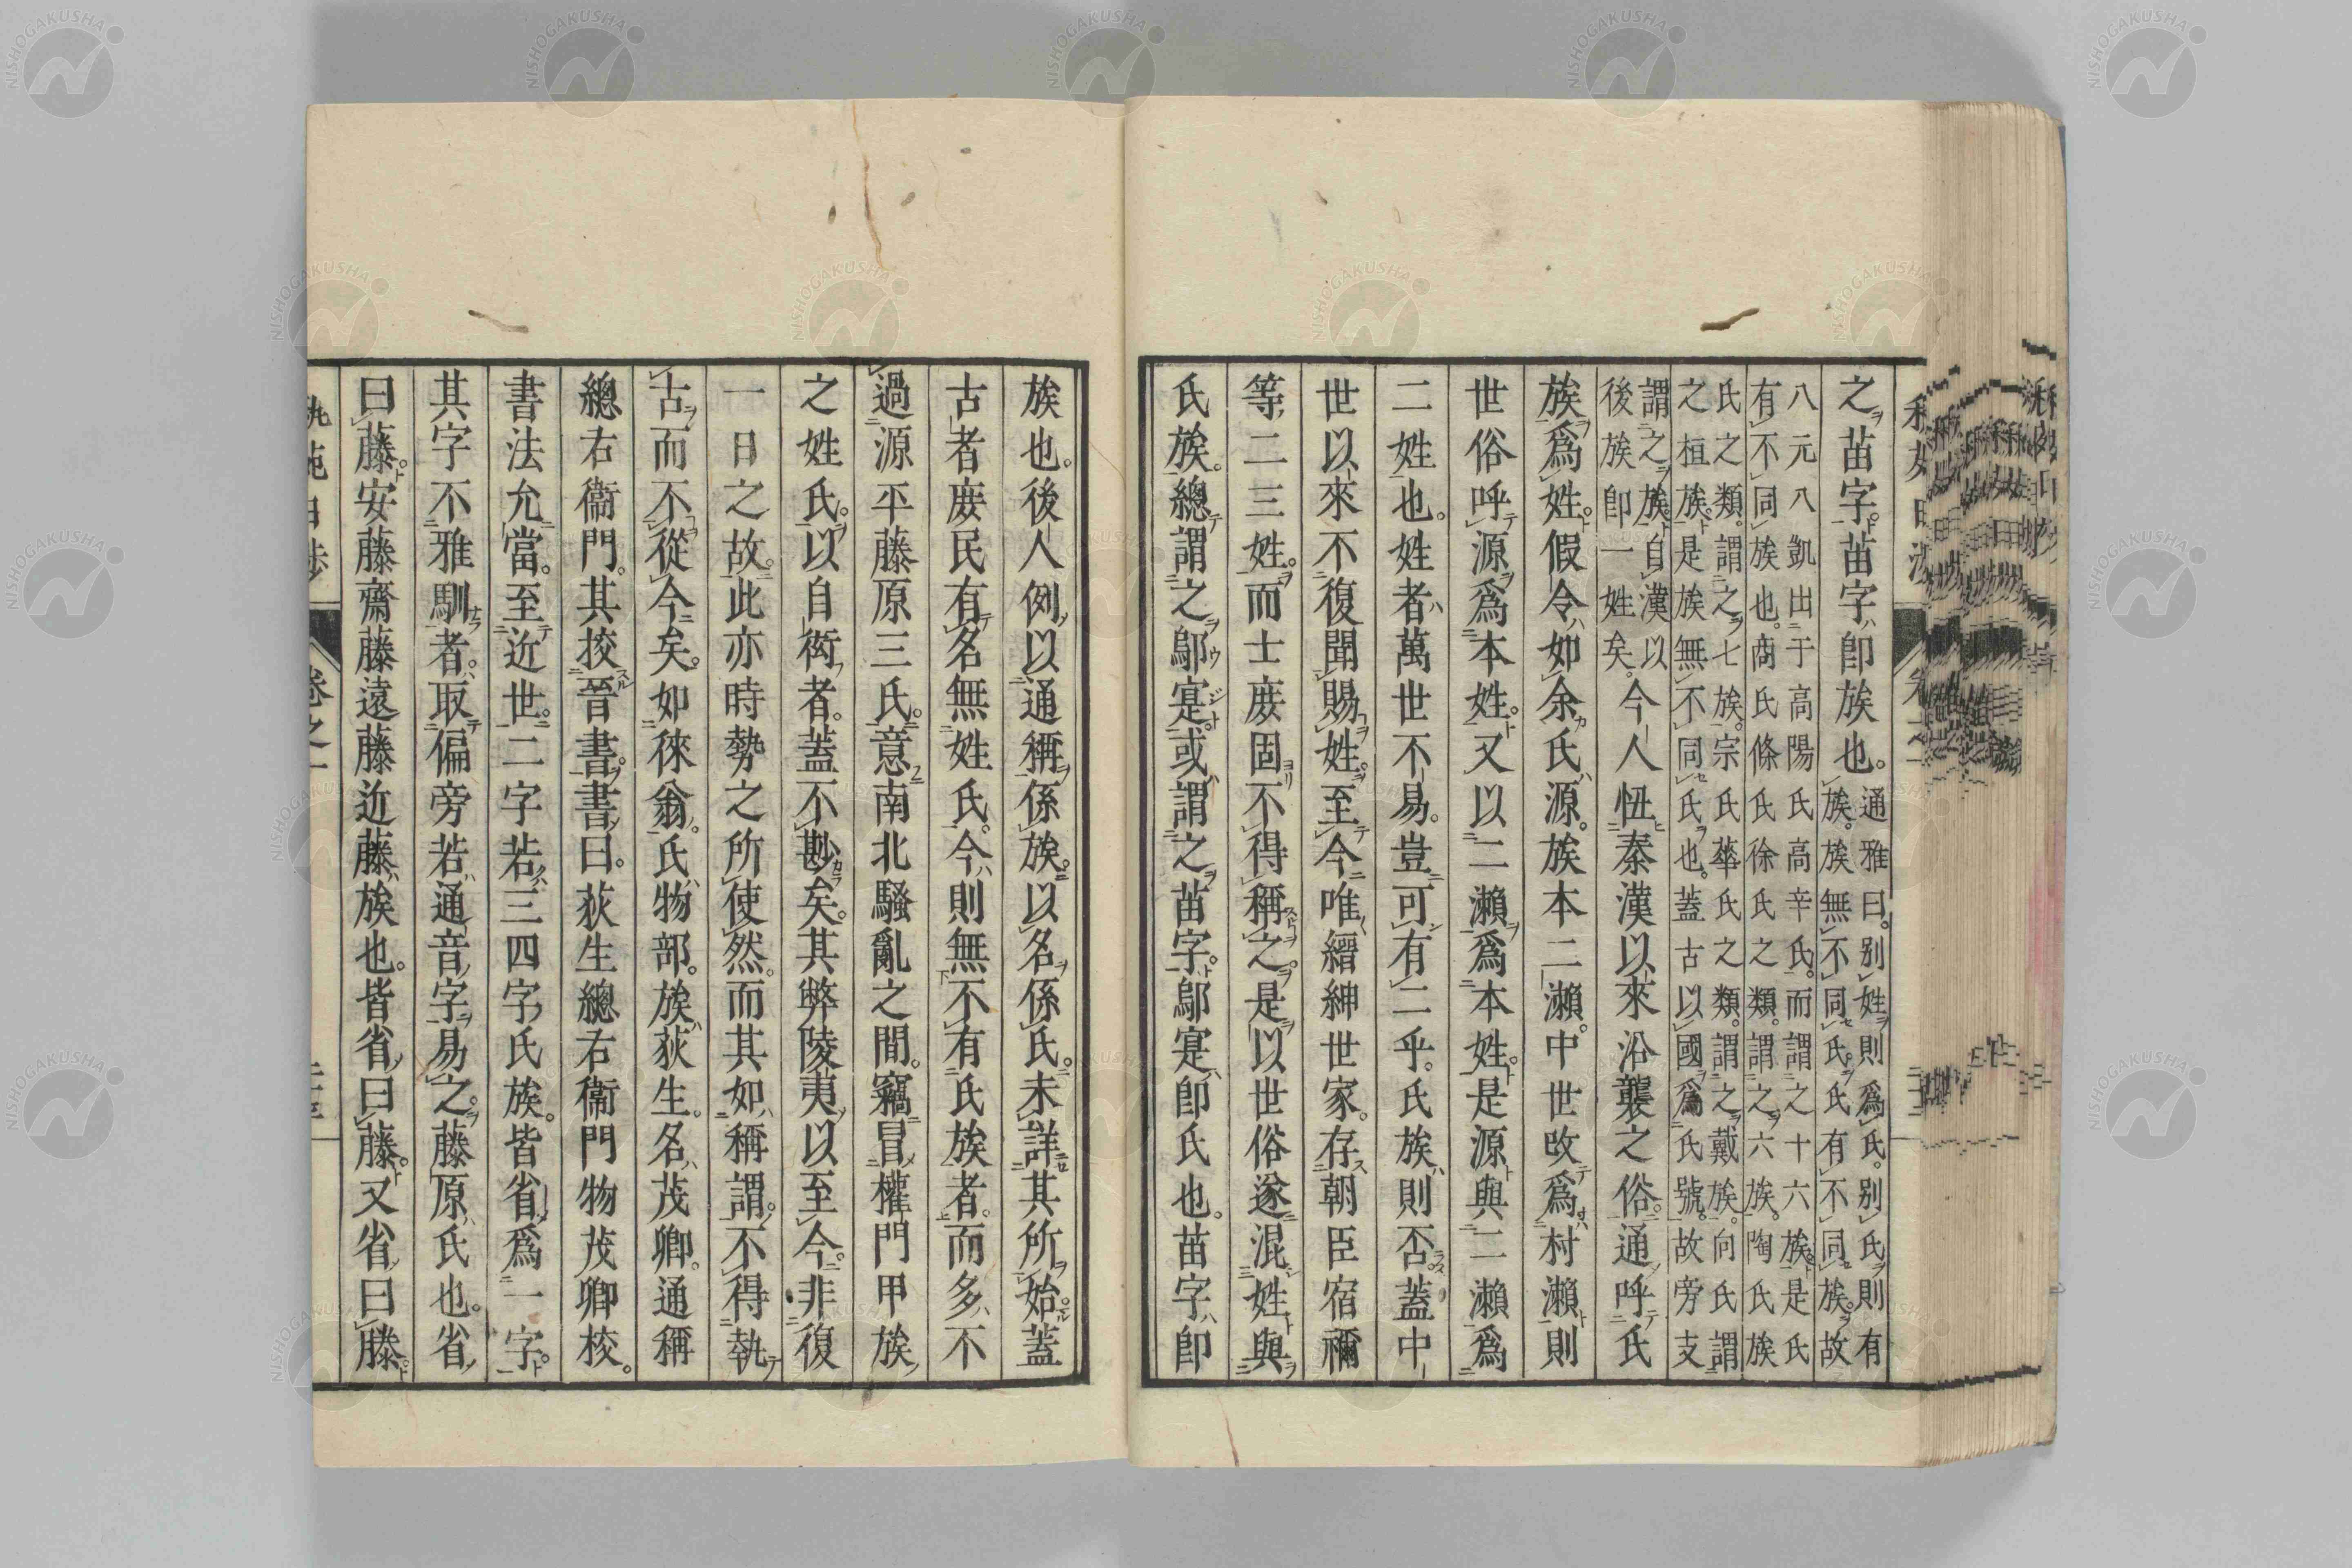 之苗字。苗字卽族也。通雅曰。別姓則爲氏。別氏則有
族。族無不同氏。氏有不同族。故
八元八凱出于高陽氏高辛氏。而謂之十六族。是氏
有不同族也。商氏條氏徐氏之類。謂之六族。陶氏族
氏之類。謂之七族。宗氏華氏之類。謂之戴族。向氏謂
之桓族。是族無不同氏也。蓋古以國爲氏號。故旁支
謂之族。自漢以
後族卽一姓矣。今人忸秦漢以來沿襲之俗。通呼氏
族爲姓。假令如余氏源。族本二瀨。中世改爲村瀨。則
世俗呼源爲本姓。又以二瀨爲本姓。是源與二瀨爲
二姓也。姓者萬世不易。豈可有二乎。氏族則否。蓋中
世以來不復聞賜姓。至今唯縉紳世家。存朝臣宿禰
等二三姓。而士庶固不得稱之。是以世俗遂混姓與
氏族。總謂之鄔寔。或謂之苗字。鄔寔卽氏也。苗字卽
族也。後人例以通稱係族。以名係氏。未詳其所始。蓋
古者庶民有名無姓氏。今則無不有氏族者。而多不
過源平藤原三氏。意南北騷亂之間。竊冒權門甲族
之姓氏。以自衒者。蓋不尠矣。其弊陵夷以至今。非復
一日之故。此亦時勢之所使然。而其如稱謂。不得執
古而不從今矣。如徠翁。氏物部。族荻生。名茂卿。通稱
總右衞門。其挍晉書。書曰。荻生總右衞門物茂卿校。
書法允當。至近世。二字若三四字氏族。皆省爲一字。
其字不雅馴者。取偏旁若通音字易之。藤原氏也。省
曰藤。安藤齋藤遠藤近藤族也。皆省曰藤。又省曰藤。
卷之一